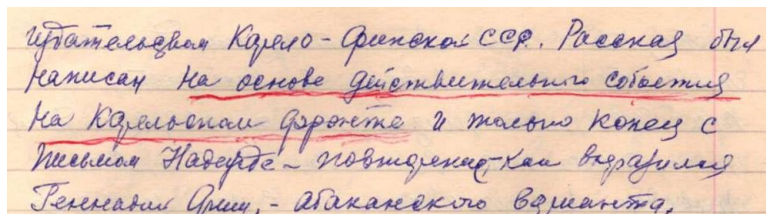 издательством Карело-Финской ССР. Рассказ был
написан на основе действительного события
на Карельском фронте и только конец с
письмом Надежде - повторение, как выразился
Геннадий Фиш, - абаканского варианта.